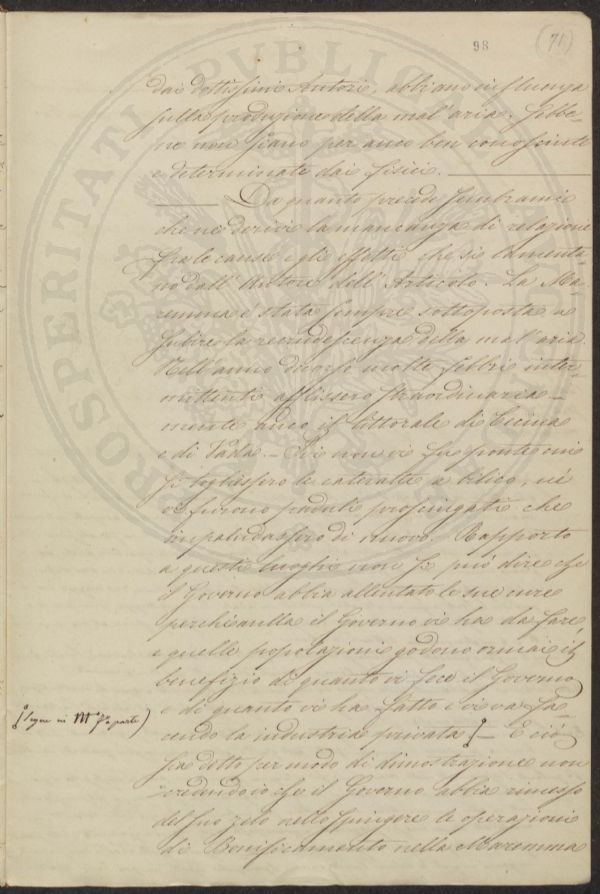 98 (71)
dai dottissimi Autori, abbiano influenza
sulla produzione della mal'aria. Sebbe-
ne non siano per anco ben conosciute
e determinate dai fisici.
Da quanto precede sembrami
che ne derivi la mancanza di relazione
fra le cause e gli effetti che si lamenta-
no dall'Autore dell'Articolo. La Ma-
remma è stata sempre sottoposta a
subire la recrudescenza della mal'aria.
Nell'anno decorso molte febbri inter-
mittenti afflissero straordinaria-
mente anco il littorale di Cecina
e di Vada. - Ivi non vi fu ponte cui
si togliessero le cateratte a bilico, nè
vi furono paduli prosciugati che
impaludassero di nuovo. Rapporto
a questi luoghi non si può dire che
il Governo abbia allentato le sue cure
perchè nulla il Governo vi ha da fare,
e quelle popolazioni godono ormai il
benefizio di quanto vi fece il Governo
e di quanto vi ha fatto e vi va fa-
cendo la industria privata - E ciò
sia detto per modo di dimostrazione non
credendo io che il Governo abbia rimesso
del suo zelo nello spingere le operazioni
di Bonificamento nella Maremma
(segue in M pa parte)
PROSPERITATI PUBLICAE